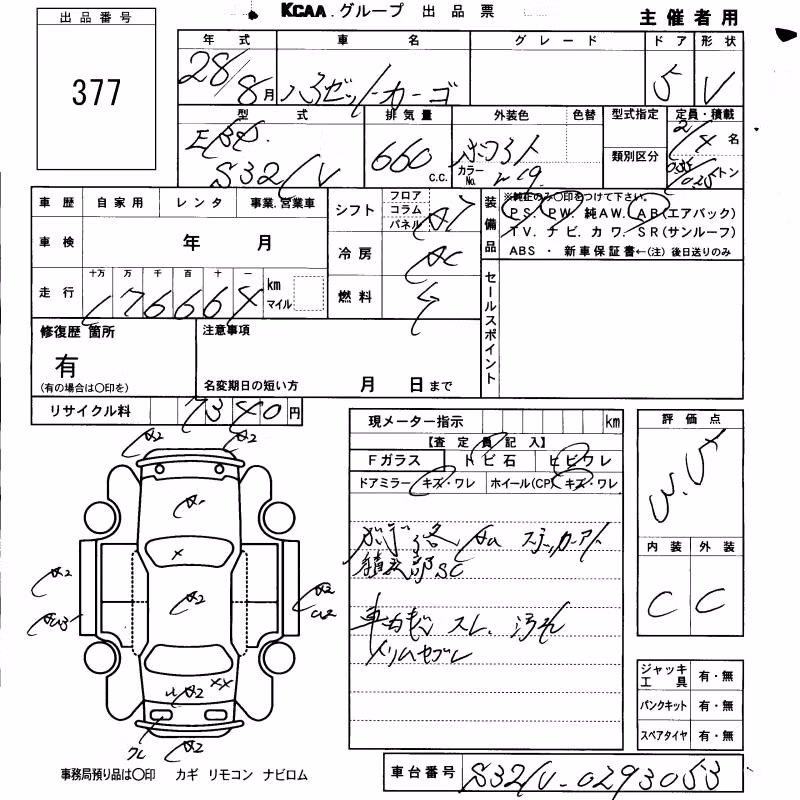 KCAA.グループ 出品票
主催者用
出品番号
377
年式 車名 グレード ドア 形状
28/8月 ハイゼットカーゴ 5 V
型式 排気量 外装色 色替 型式指定 定員・積載
EBD- 660 c.c. ホワイト 類別区分 2/4名
S321V カラーNo. W19 0.35/0.25トン
車歴 自家用 レンタ 事業.営業車
シフト フロア コラム パネル AT
車検 年 月
冷房 AC
走行 十万 万 千 百 十 一
176664 km マイル
燃料
装備品 ※純正のみ〇印をつけて下さい。
PS. PW. 純AW. AB(エアバック)
TV. ナビ. カワ. SR(サンルーフ)
ABS ・ 新車保証書←(注) 後日送りのみ
セールスポイント
修復歴 箇所
有
(有の場合は〇印を)
注意事項
名変期日の短い方 月 日まで
リサイクル料 7340円
現メーター指示 km
【査定員記入】
Fガラス トビ石 ヒビワレ
ドアミラー キズ・ワレ ホイール(CP) キズ・ワレ
ボデー各 AU ステッカーアト
積込部SC
車内キズ スレ. 汚れ
評価点
3.5
内装 外装
C C
A2 A2
A1
X
A2
A2
A2
A2
XX
A2
ワレ
A2
ジャッキ工具 有・無
パンクキット 有・無
スペアタイヤ 有・無
事務局預り品は〇印 カギ リモコン ナビロム
車台番号 S321V-0293053